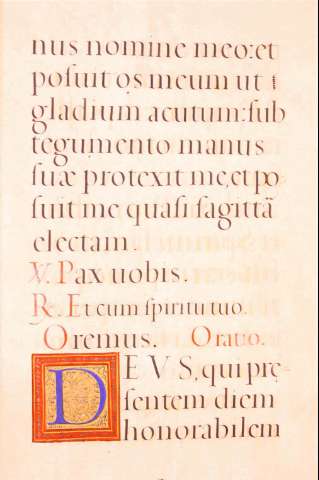 nus nomine meo: et
posuit os meum ut
gladium acutum: sub
tegumento manus
suæ protexit me, et po
suit me quasi sagittā
electam.
V. Pax uobis.
R. Et cum spiritu tuo.
Oremus. Oratio.
DEVS, qui prę
sentem diem
honorabilem